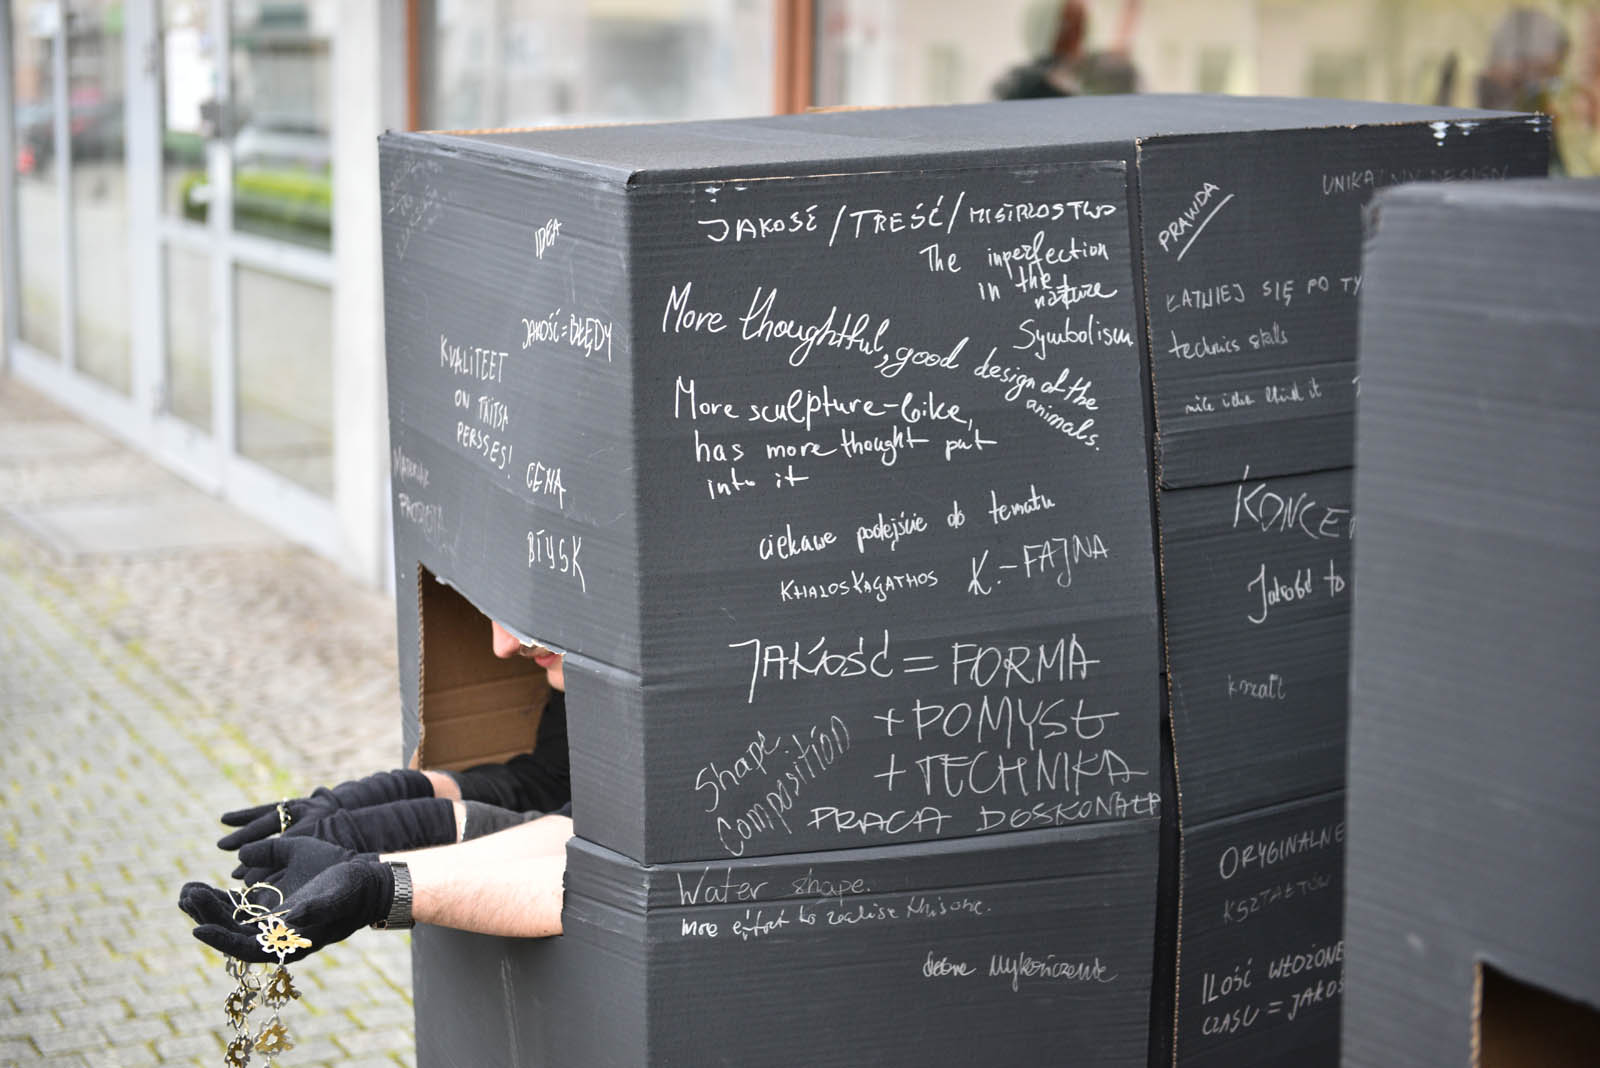 IDEA
JAKOŚĆ=BŁĘDY
KVALITEET
ON TÄITSA
PERSSES!
CENA
BŁYSK
JAKOŚĆ/TREŚĆ/MISTRZOSTWO
The inperfection
in the
nature
Symbolism
More thoughtful, good design of the
animals.
More sculpture-like,
has more thought put
into it
ciekawe podejście do tematu
KHALOSKAGATHOS K.-FAJNA
JAKOŚĆ = FORMA
+POMYSŁ
+TECHNIKA
Shape
Composition
PRACA DOSKONAŁA
Water shape.
More effort to realise this one.
dobre wykończenie
PRAWDA
UNIKALNY DESIGN
ŁATWIEJ SIĘ PO TY
technics skills
KONCE
Jakość to
ORYGINALNE
KSZTAŁTÓW
ILOŚĆ WŁOŻONE
CZASU = JAKOŚ